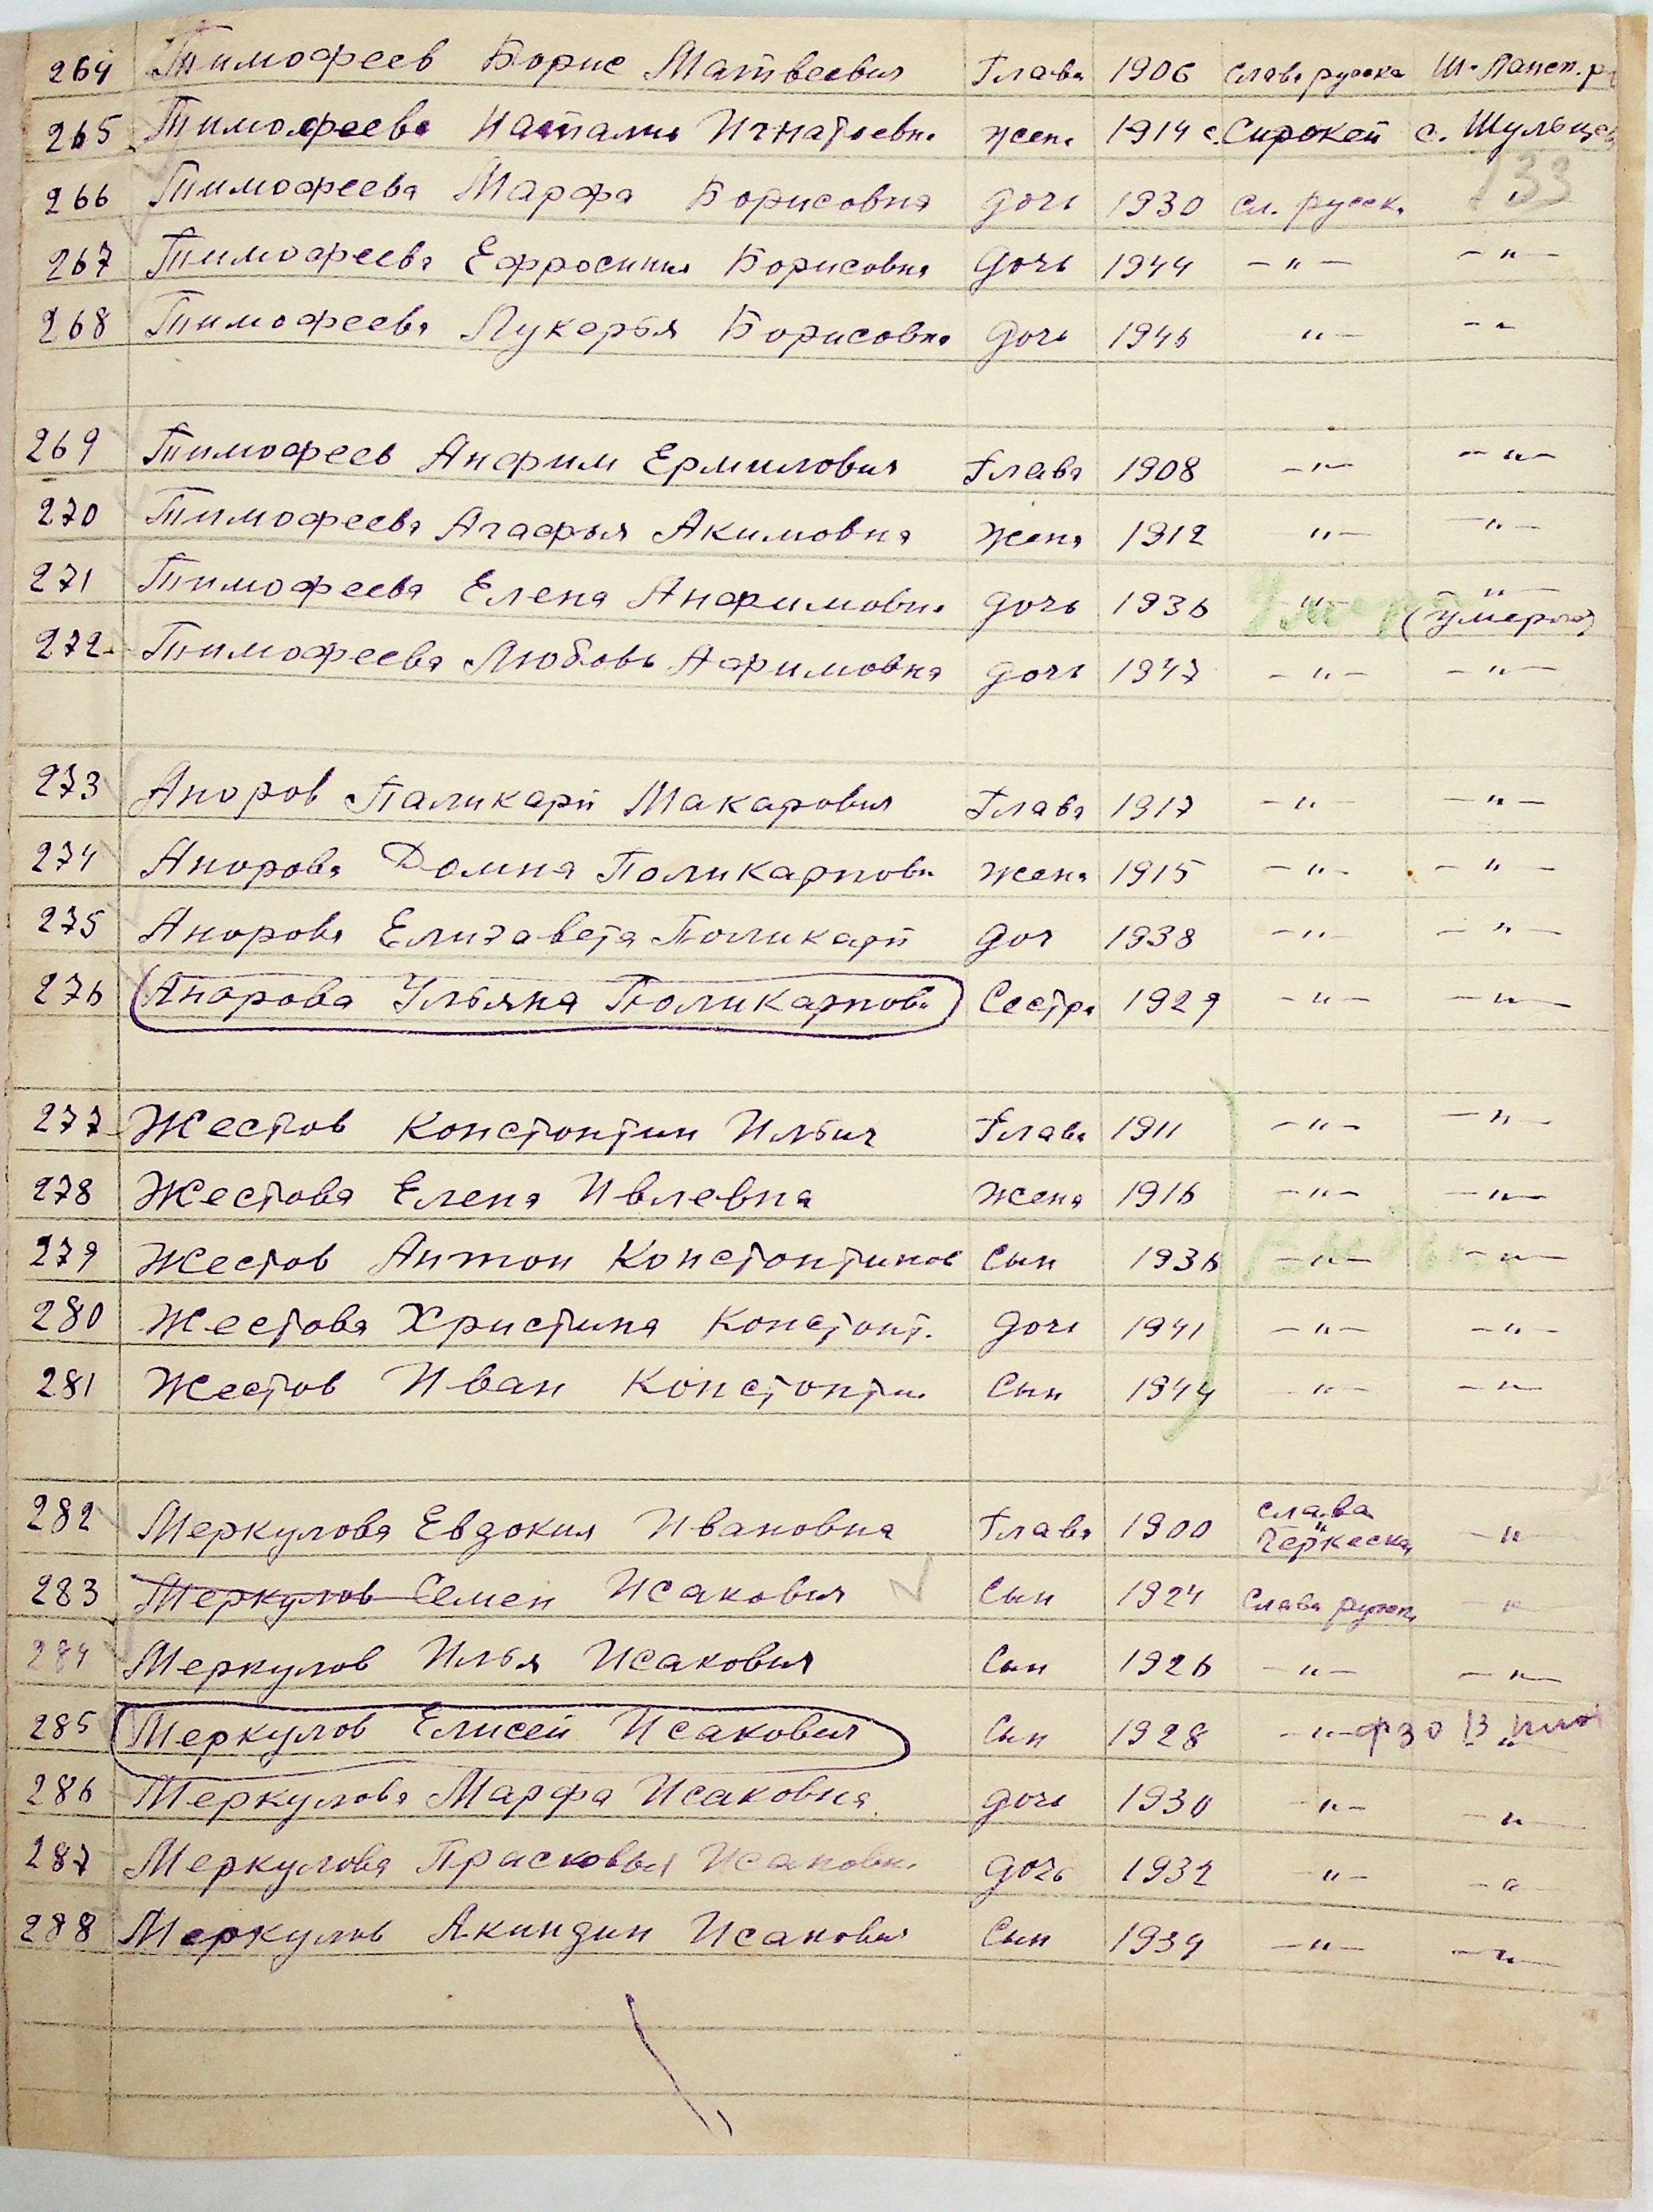 264 Тимофеев Борис Матвеевич Глава 1906 Слава русска Ш-Панен. р
265 Тимофеева Наталия Игнатьевна жена 1914 с. Сирокей с. Шульцев
133
266 Тимофеева Марфа Борисовна дочь 1930 сл. русска "
267 Тимофеева Ефросиния Борисовна дочь 1944 -"- -"-
268 Тимофеева Лукерья Борисовна дочь 1946 "- -"
269 Тимофеев Анфим Ермилович Глава 1908 -"- -"-
270 Тимофеева Агафья Акимовна жена 1912 "- -"-
271 Тимофеева Елена Анфимовна дочь 1936 -"- " (умерла)
272 Тимофеева Любовь Афимовна дочь 1947 -"- -"-
273 Аноров Паликарп Макарович Глава 1917 -"- -"-
274 Анорова Домна Поликарповн жена 1915 -"- -"-
275 Анорова Елизавета Поликарп доч 1938 -"- -"-
276 Анорова Ульяна Поликарповн Сестра 1929 -"- -"-
277 Жестов Констонтин Ильич Глава 1911 -"- -"-
278 Жестова Елена Ивлевна жена 1916 -"- -"-
279 Жестов Антон Констонтинов Сын 1936 -"- -"-
280 Жестова Христина Констонт. дочь 1941 -"- -"-
281 Жестов Иван Констонтин Сын 1944 -"- -"-
282 Меркулова Евдокия Ивановна Глава 1900 слава Черкеска -"
283 Меркулов Семен Исакович Сын 1924 Слава русск. -"-
284 Меркулов Илья Исакович Сын 1926 -"- -"-
285 Меркулов Елисей Исакович Сын 1928 -"- ФЗО В "
286 Меркулова Марфа Исаковна дочь 1930 -"- -"-
287 Меркулова Прасковья Исаковн. дочь 1932 -"- -"-
288 Меркулов Акиндин Исакович Сын 1934 -"- -"-